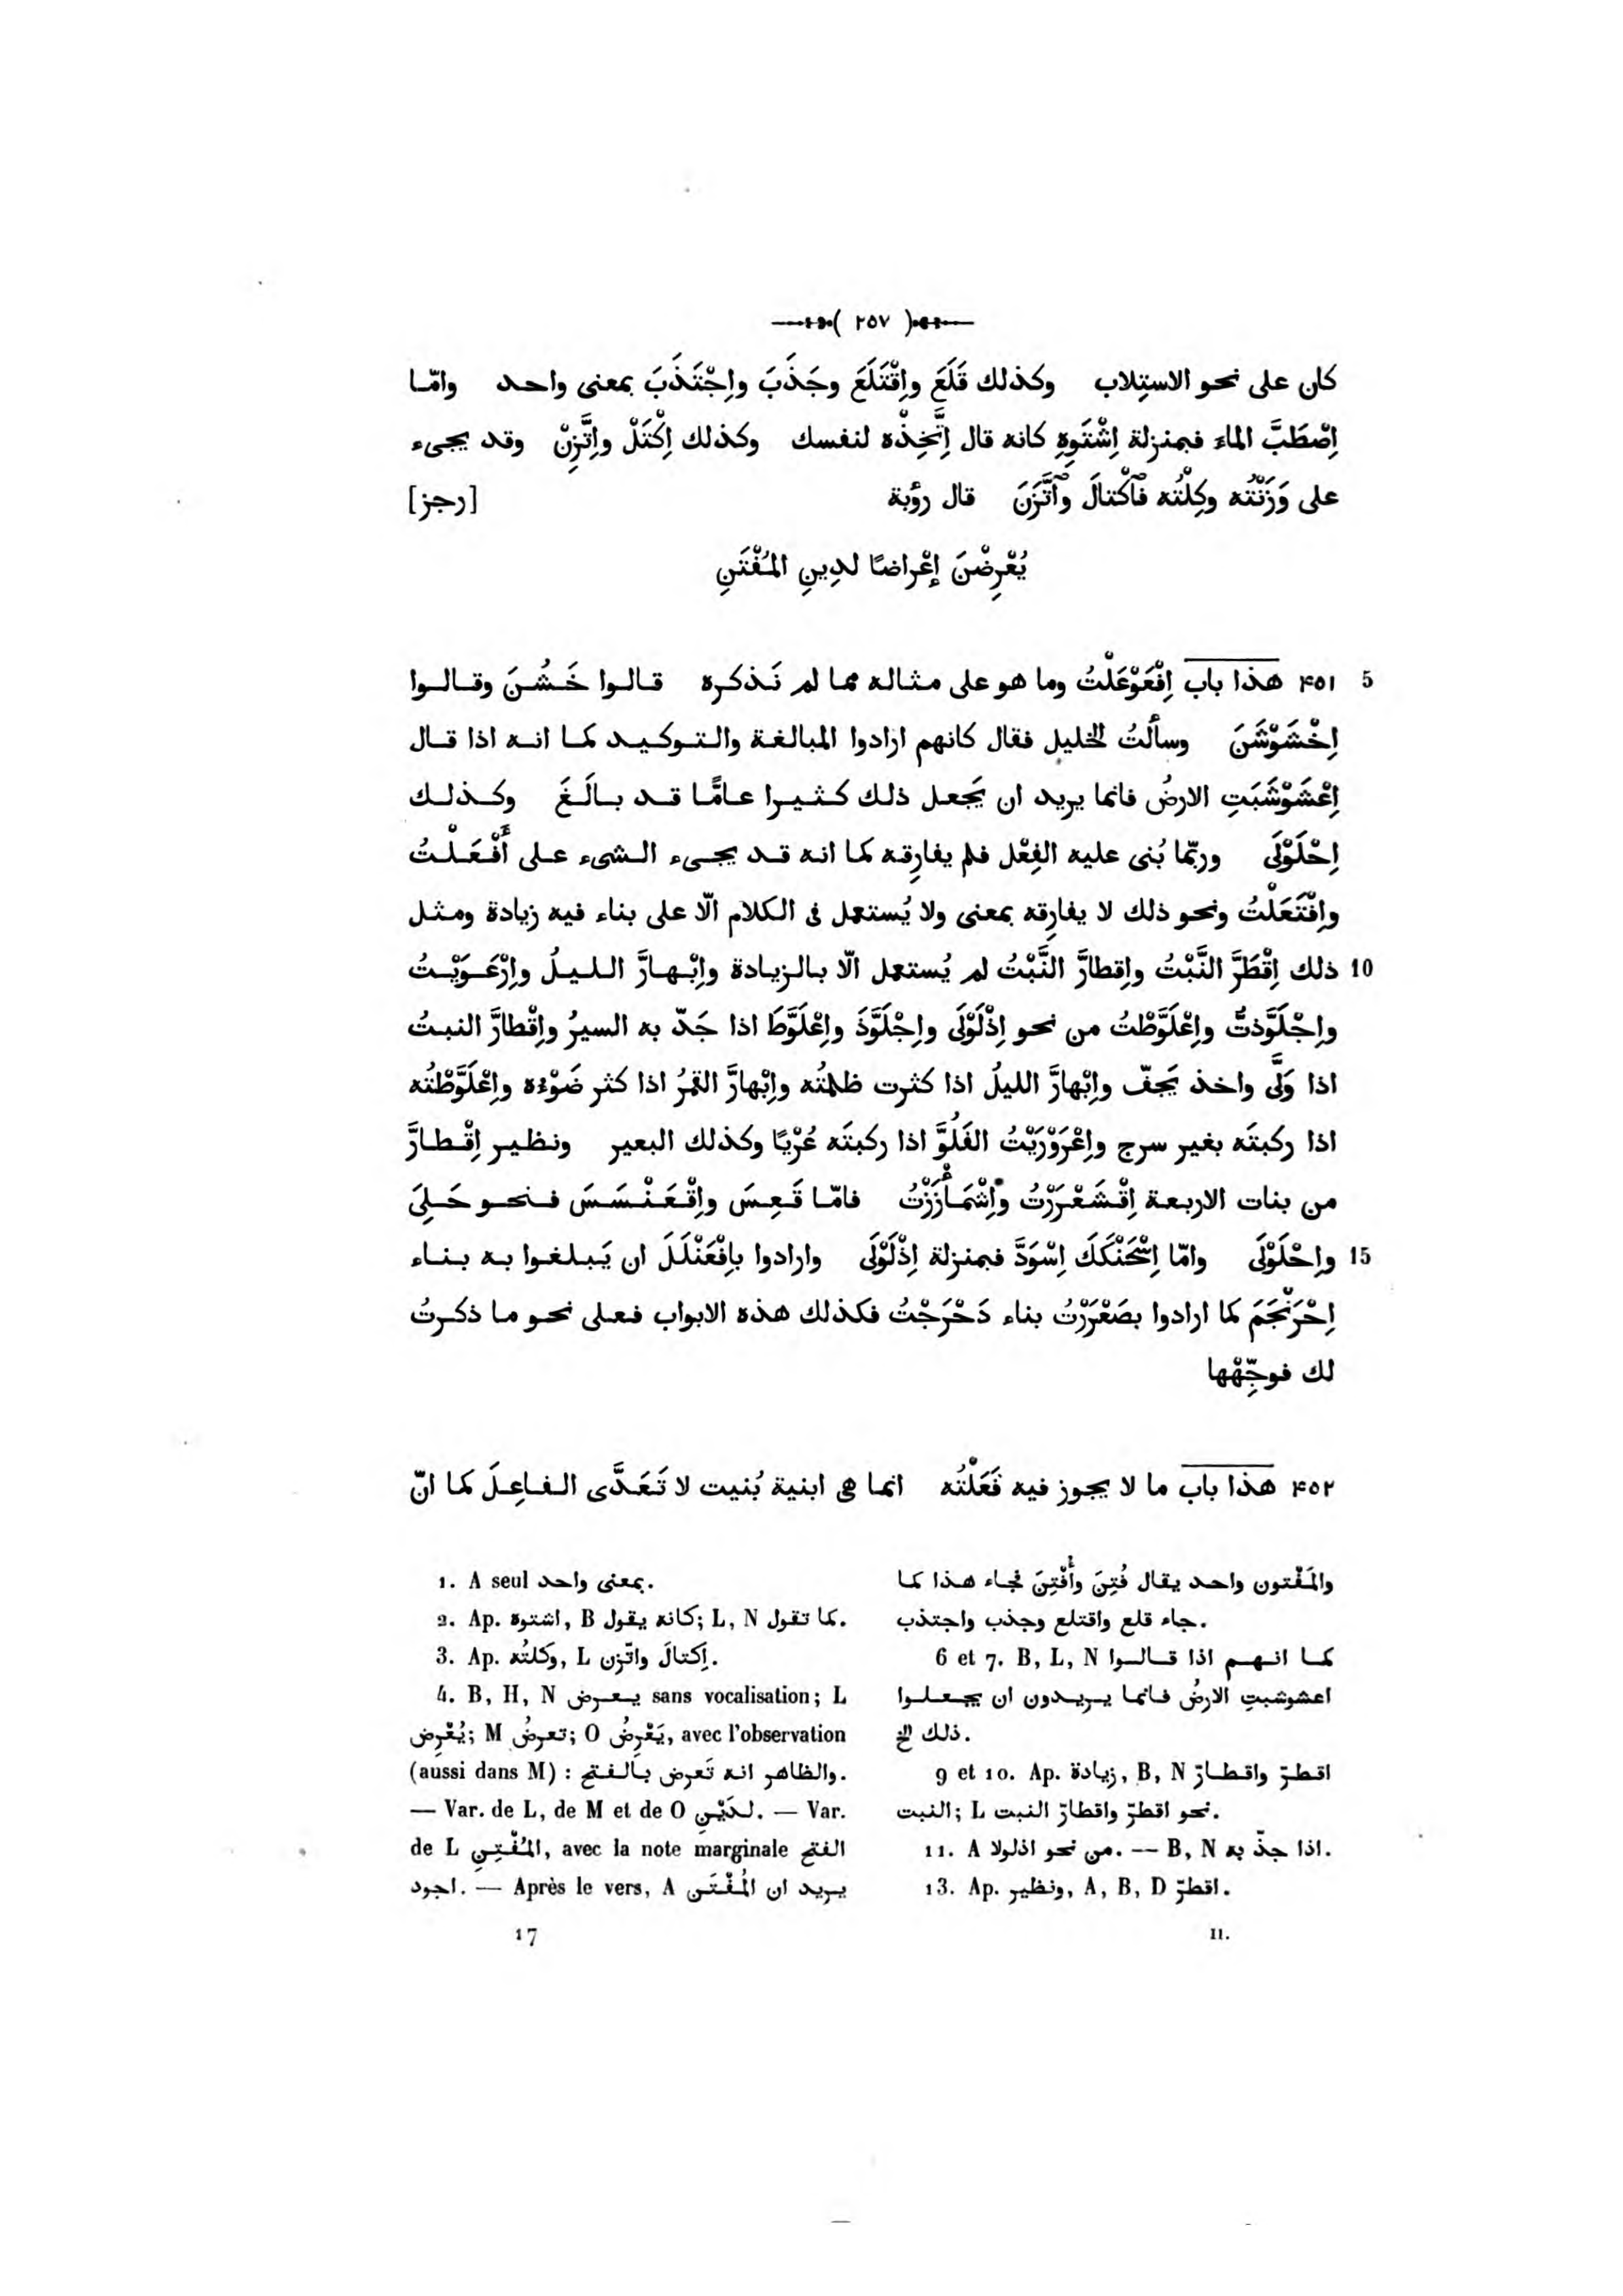 ( ٢٥٧ )
كان على نحو الاستِلاب وكذلك قَلَعَ واِقْتَلَعَ وجَذَبَ واِجْتَذَبَ بمعنى واحد وامّا
اِصْطَبَّ الماءَ فبمنزلة اِشْتَوِهِ كانه قال اِتَّخِذْه لنفسك وكذلك اِكْتَلْ واِتَّزِنْ وقد يجىء
على وَزَنْتُه وكِلْتُه فَٱكْتالَ وٱتَّزَنَ قال رؤبة [رجز]
يُعْرِضْنَ إعْراضًا لدِينِ المُفْتَنِ
5 ۴٥١ هذا باب اِفْعَوْعَلْتُ وما هو على مثاله مما لم نَذكره قالوا خَشُنَ وقالوا
اِخْشَوْشَنَ وسألتُ الخليل فقال كانهم ارادوا المبالغة والتوكيد كما انه اذا قال
اِعْشَوْشَبَتِ الارضُ فانما يريد ان يَجعل ذلك كثيرا عامًّا قد بالَغَ وكذلك
اِحْلَوْلَى وربّما بُنى عليه الفِعْل فلم يفارِقه كما انه قد يجىء الشىء على أَفْعَلْتُ
واِفْتَعَلْتُ ونحو ذلك لا يفارِقه بمعنى ولا يُستعمل فى الكلام الّا على بناء فيه زيادة ومثل
10 ذلك اِقْطَرَّ النَّبْتُ واِقطارَّ النَّبْتُ لم يُستعمل الّا بالزيادة واِبْهارَّ الليلُ واِرْعَوَيْتُ
واِجْلَوَّذتُّ واِعْلَوَّطْتُ من نحو اِذْلَوْلَى واِجْلَوَّذَ واِعْلَوَّطَ اذا جَدّ به السيرُ واِقْطارَّ النبتُ
اذا وَلَّى واخذ يَجفّ واِبْهارَّ الليلُ اذا كثرت ظلمتُه واِبْهارَّ القمرُ اذا كثر ضَوْءُه واِعْلَوَّطْتُه
اذا ركبتَه بغير سرج واِعْرَوْرَيْتُ الفَلُوَّ اذا ركبتَه عُرْيًا وكذلك البعير ونظير اِقْطارَّ
من بنات الاربعة اِقْشَعْرَرْتُ واِشْمَأْزَزْتُ فامّا قَعِسَ واِقْعَنْسَسَ فنحو حَلِىَ
15 واِحْلَوْلَى وامّا اِسْحَنْكَكَ اِسْوَدَّ فبمنزلة اِذْلَوْلَى وارادوا باِفْعَنْلَلَ ان يَبلغوا به بناء
اِحْرَنْجَمَ كما ارادوا بصَعْرَرْتُ بناء دَحْرَجْتُ فكذلك هذه الابواب فعلى نحو ما ذكرتُ
لك فوجِّهْها
۴٥٢ هذا باب ما لا يجوز فيه فَعَلْتُه انما هى ابنية بُنيت لا تَعَدَّى الفاعِلَ كما انّ
1. A seul بمعنى واحد.
2. Ap. اشتوه, B كانه يقول; L, N كما تقول.
3. Ap. وكلتُه, L اِكتالَ واتّزن.
4. B, H, N يعرض sans vocalisation; L
يُعْرِض; M تعرضُ; O يَعْرِضُ, avec l'observation
(aussi dans M) : والظاهر انه تَعرض بالفتح.
— Var. de L, de M et de O لدَيْنِ. — Var.
de L المُفْتِنِ, avec la note marginale الفتح
اجود. — Après le vers, A يريد ان المُفْتَن
والمَفْتون واحد يقال فُتِنَ وأُفْتِنَ فجاء هذا كما
جاء قلع واقتلع وجذب واجتذب.
6 et 7. B, L, N كما انهم اذا قالوا
اعشوشبتِ الارضُ فانما يريدون ان يجعلوا
ذلك الخ.
9 et 10. Ap. زيادة, B, N اقطرّ واقطارّ
النبت; L نحو اقطرّ واقطارّ النبت.
11. A من نحو اذلولا. — B, N اذا جدّ به.
13. Ap. ونظير, A, B, D اقطرّ.
17 II.